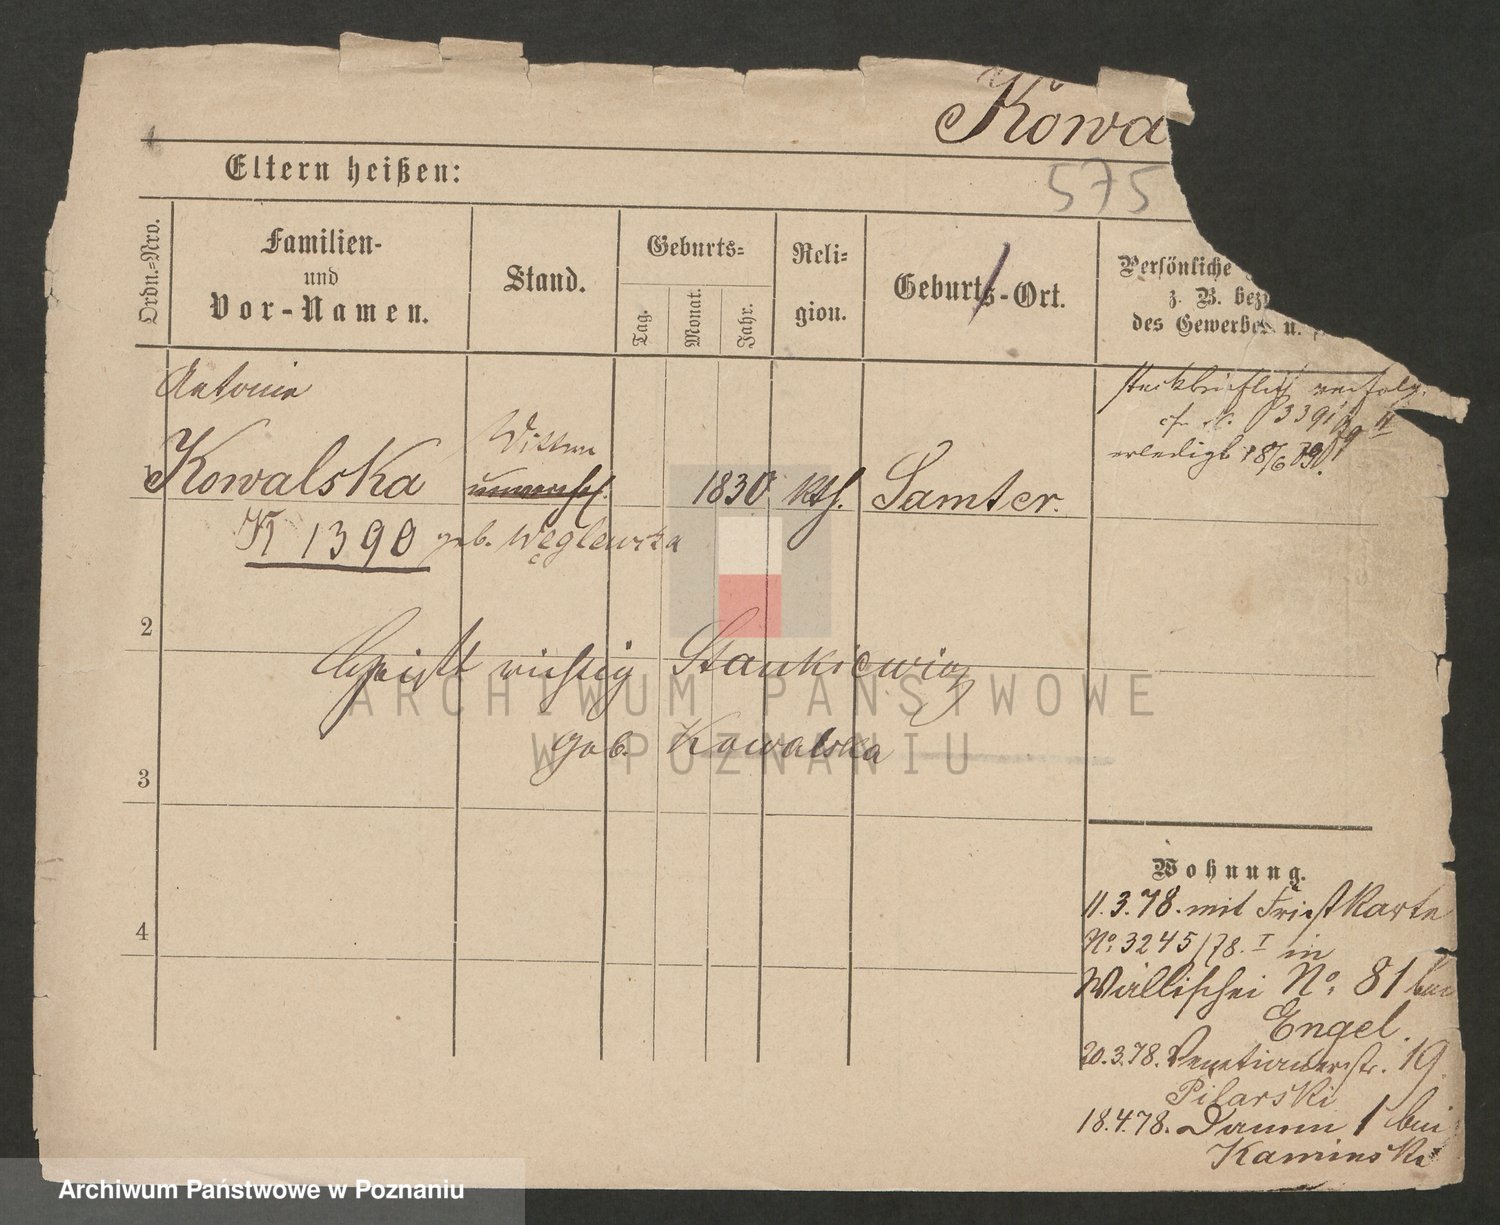 Kowa
Eltern heißen:
575
Ordn.=Nro.
Familien-
und
Vor-Namen.
Stand.
Geburts=
Tag.
Monat.
Jahr.
Reli-
gion.
Geburts-Ort.
Persönliche
z. B. bez
des Gewerbes u.
Antonie
Kowalska
Wittwe
unverehl.
1830
kth.
Samter.
steckbrieflich verfolg
erledigt 18/6
1
K 1390 geb. Węglewska
2
heißt richtig Stankiewicz
geb. Kowalska
3
4
Wohnung.
11.3.78. mit Frist Karte
No. 3245/78. I in
Wallischei No. 81 bei
Engel.
20.3.78. Venetianerstr. 19.
Pilarski
18.4.78. Damm 1 bei
Kaminski
ARCHIWUM PAŃSTWOWE
W POZNANIU
Archiwum Państwowe w Poznaniu